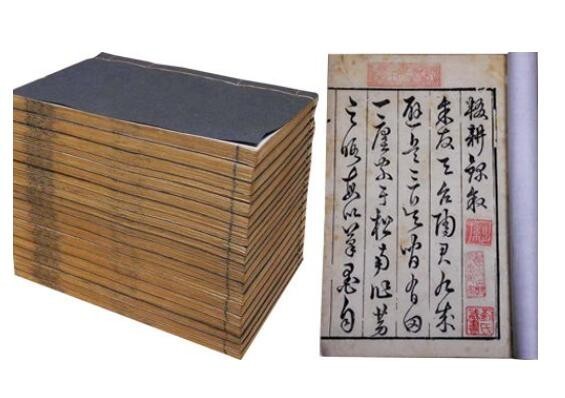 輟耕録叙
余友天台陶君九成
避兵三吳間有田
一廛家于松南作勞
之暇每以筆墨自